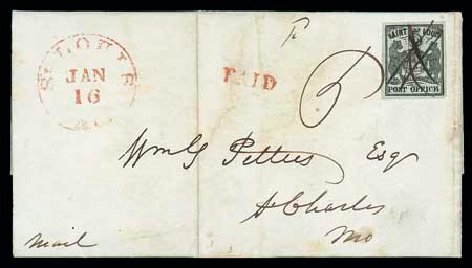 ST. LOUIS
JAN
16
PAID
5
SAINT LOUIS
POST OFFICE
Wm G Pettus Esq
St Charles
Mo
Mail